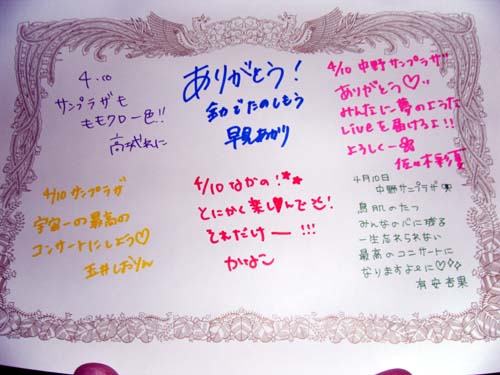 4.10
サンプラザも
ももクロ一色!!
高城れに
ありがとう!
全力でたのしもう
早見あかり
4/10 中野サンプラザ
ありがとう♡
みんなに夢のような
Liveを届けるよ!!
よろしくー
佐々木彩夏
4/10 サンプラザ
宇宙一の最高の
コンサートにしよう♡
玉井しおりん
4/10 なかの!
とにかく楽しんで!
それだけー!!!
かなこ
4月10日
中野サンプラザ
鳥肌のたつ
みんなの心に残る
一生忘れられない
最高のコンサートに
なりますように♡
有安杏果